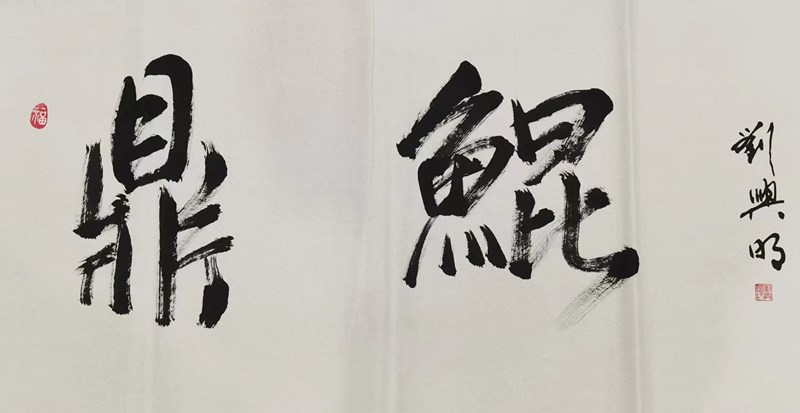 福
鼎鯤
劉興明